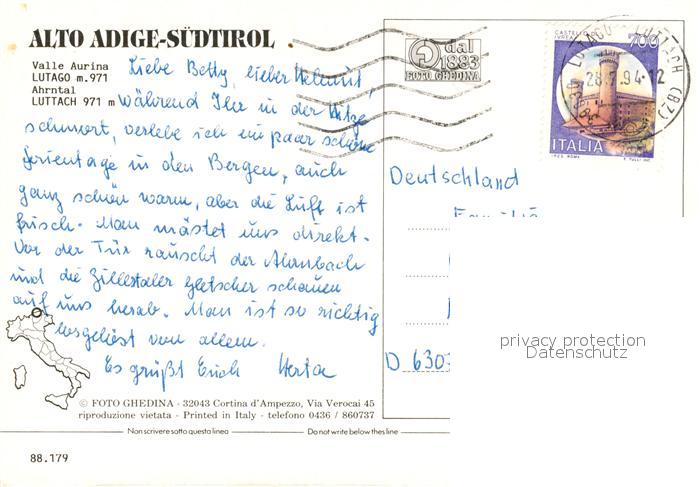 ALTO ADIGE-SÜDTIROL
Valle Aurina
LUTAGO m.971
Ahrntal
LUTTACH 971 m
Liebe Betty, lieber Helmut,
Während Ihr in der Hitze
schmort, verlebe ich ein paar schöne
Ferientage in den Bergen, auch
ganz schön warm, aber die Luft ist
frisch. Man mästet uns direkt.
Vor der Tür rauscht der
und die Zillertaler Gletscher schauen
auf uns herab. Man ist so richtig
losgelöst von allem.
Es grüßt Euch Herta
© FOTO GHEDINA - 32043 Cortina d'Ampezzo, Via Verocai 45
riproduzione vietata - Printed in Italy - telefono 0436 / 860737
Non scrivere sotto questa linea
Do not write below thes line
88.179
dal
1883
FOTO GHEDINA
CASTELLO
IVREA
700
ITALIA
LUTAGO LUTTACH (BZ)
28.7.94-12
Deutschland
Familie
D 6303
privacy protection
Datenschutz